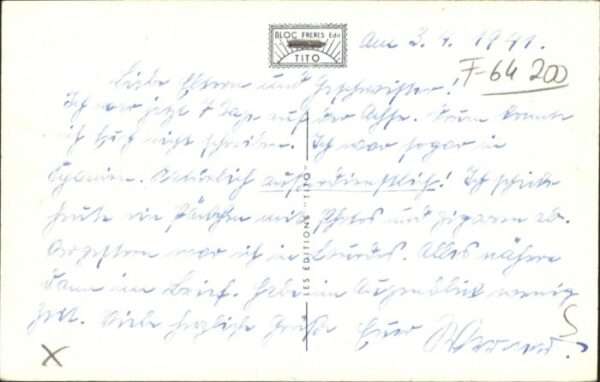 BLOC FRERES Edit
TITO
Am 3.4.1941.
F-64200
Liebe Eltern und Geschwister!
Ich war jetzt 7 Tage auf der Achse. Drum konnte
ich Euch nicht schreiben. Ich war sogar in
Spanien. Natürlich außerdienstlich! Ich schicke
heute ein Päckchen mit Photos und Zigarren ab.
Vorgestern war ich in Lourdes. Alles nähere
dann im Brief. Habe im Augenblick wenig
Zeit. Viele herzliche Grüße Euer Werner.
LES EDITIONS "TITO"
X